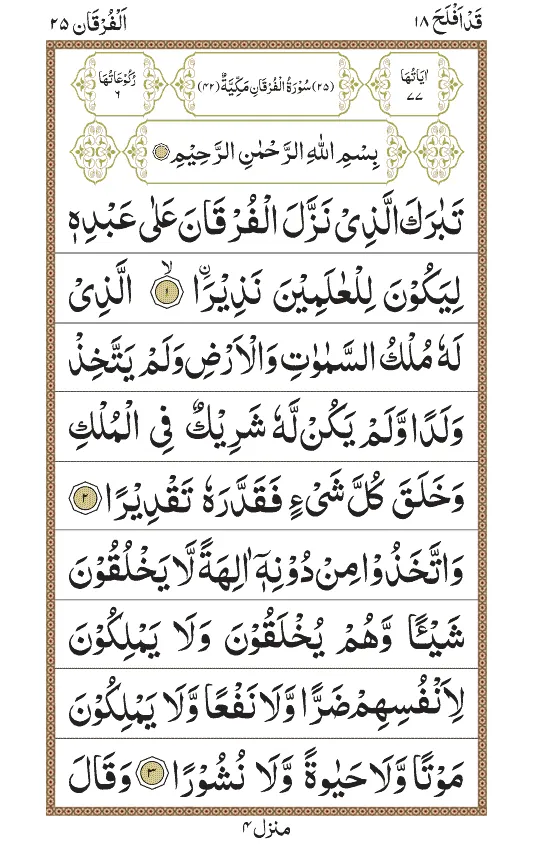 قَدْ اَفْلَحَ ۱۸
اَلْفُرْقَان ۲۵
اٰیَاتُهَا ۷۷
(۲۵) سُوْرَةُ الْفُرْقَانِ مَكِّيَّةٌ (۴۲)
رُكُوْعَاتُهَا ۶
بِسْمِ اللّٰهِ الرَّحْمٰنِ الرَّحِيْمِ
تَبٰرَكَ الَّذِیْ نَزَّلَ الْفُرْقَانَ عَلٰی عَبْدِهٖ
لِیَكُوْنَ لِلْعٰلَمِیْنَ نَذِیْرَاۙ ۟ ۱ الَّذِیْ
لَهٗ مُلْكُ السَّمٰوٰتِ وَالْاَرْضِ وَلَمْ یَتَّخِذْ
وَلَدًا وَّلَمْ یَكُنْ لَّهٗ شَرِیْكٌ فِی الْمُلْكِ
وَخَلَقَ كُلَّ شَیْءٍ فَقَدَّرَهٗ تَقْدِیْرًا ۲
وَاتَّخَذُوْا مِنْ دُوْنِهٖۤ اٰلِهَةً لَّا یَخْلُقُوْنَ
شَیْـًٔا وَّهُمْ یُخْلَقُوْنَ وَلَا یَمْلِكُوْنَ
لِاَنْفُسِهِمْ ضَرًّا وَّلَا نَفْعًا وَّلَا یَمْلِكُوْنَ
مَوْتًا وَّلَا حَیٰوةً وَّلَا نُشُوْرًا ۳ وَقَالَ
منزل ۴